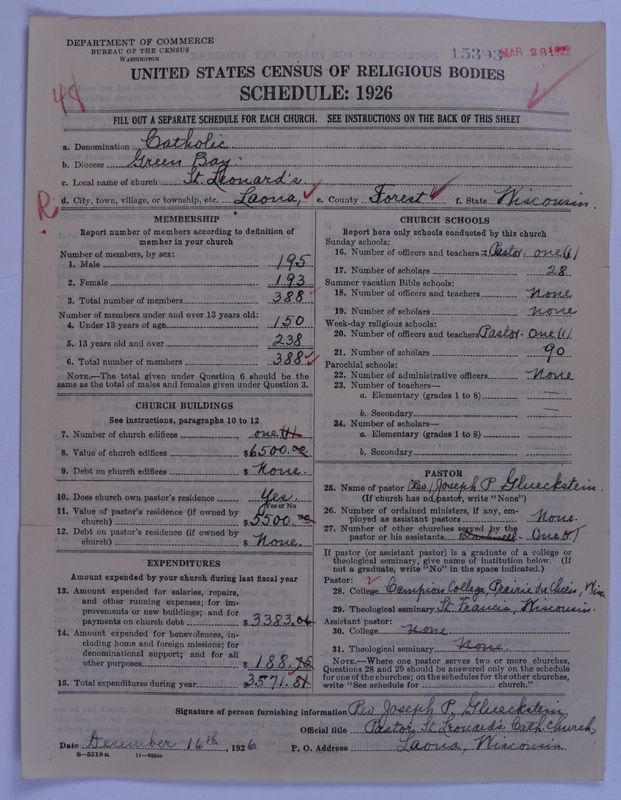 DEPARTMENT OF COMMERCE
BUREAU OF THE CENSUS
WASHINGTON
15393 MAR 28 1927
UNITED STATES CENSUS OF RELIGIOUS BODIES
SCHEDULE: 1926
48
FILL OUT A SEPARATE SCHEDULE FOR EACH CHURCH. SEE INSTRUCTIONS ON THE BACK OF THIS SHEET
a. Denomination Catholic
b. Diocese Green Bay.
c. Local name of church St. Leonard's.
R. d. City, town, village, or township, etc. Laona, e. County Forest f. State Wisconsin.
MEMBERSHIP
Report number of members according to definition of member in your church
Number of members, by sex:
1. Male 195
2. Female 193
3. Total number of members 388
Number of members under and over 13 years old:
4. Under 13 years of age 150
5. 13 years old and over 238
6. Total number of members 388
NOTE.—The total given under Question 6 should be the same as the total of males and females given under Question 3.
CHURCH BUILDINGS
See instructions, paragraphs 10 to 12
7. Number of church edifices one (1)
8. Value of church edifices $6500.00
9. Debt on church edifices $ None.
10. Does church own pastor's residence Yes.
Yes or No
11. Value of pastor's residence (if owned by church) $5500.00
12. Debt on pastor's residence (if owned by church) $ None.
EXPENDITURES
Amount expended by your church during last fiscal year
13. Amount expended for salaries, repairs, and other running expenses; for improvements or new buildings; and for payments on church debt $3383.06
14. Amount expended for benevolences, including home and foreign missions; for denominational support; and for all other purposes $188.75
15. Total expenditures during year 3571.81
CHURCH SCHOOLS
Report here only schools conducted by this church
Sunday schools:
16. Number of officers and teachers Pastor - one (1)
17. Number of scholars 28
Summer vacation Bible schools:
18. Number of officers and teachers None
19. Number of scholars none
Week-day religious schools:
20. Number of officers and teachers Pastor - One (1)
21. Number of scholars 90
Parochial schools:
22. Number of administrative officers None
23. Number of teachers—
a. Elementary (grades 1 to 8) —
b. Secondary —
24. Number of scholars—
a. Elementary (grades 1 to 8)
b. Secondary
PASTOR
25. Name of pastor (Rev.) Joseph P. Glueckstein.
(If church has no pastor, write "None")
26. Number of ordained ministers, if any, employed as assistant pastors None.
27. Number of other churches served by the pastor or his assistants One (1)
If pastor (or assistant pastor) is a graduate of a college or theological seminary, give name of institution below. (If not a graduate, write "No" in the space indicated.)
Pastor:
28. College Campion College, Prairie du Chien, Wis.
29. Theological seminary St. Francis, Wisconsin.
Assistant pastor:
30. College none
31. Theological seminary None.
NOTE.—Where one pastor serves two or more churches, Questions 28 and 29 should be answered only on the schedule for one of the churches; on the schedules for the other churches, write "See schedule for church."
Signature of person furnishing information Rev. Joseph P. Glueckstein
Official title Pastor, St. Leonard's Cath Church,
Date December 16th, 1926 P. O. Address Laona, Wisconsin
8—5518a